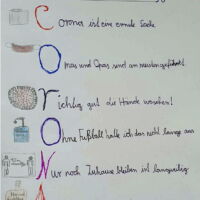 Corona ist eine ernste Sache
Omas und Opas sind am meisten gefährdet!
richtig gut die Hände waschen!
Ohne Fußball halte ich das nicht lange aus
Nur noch Zuhause bleiben ist langweilig
A